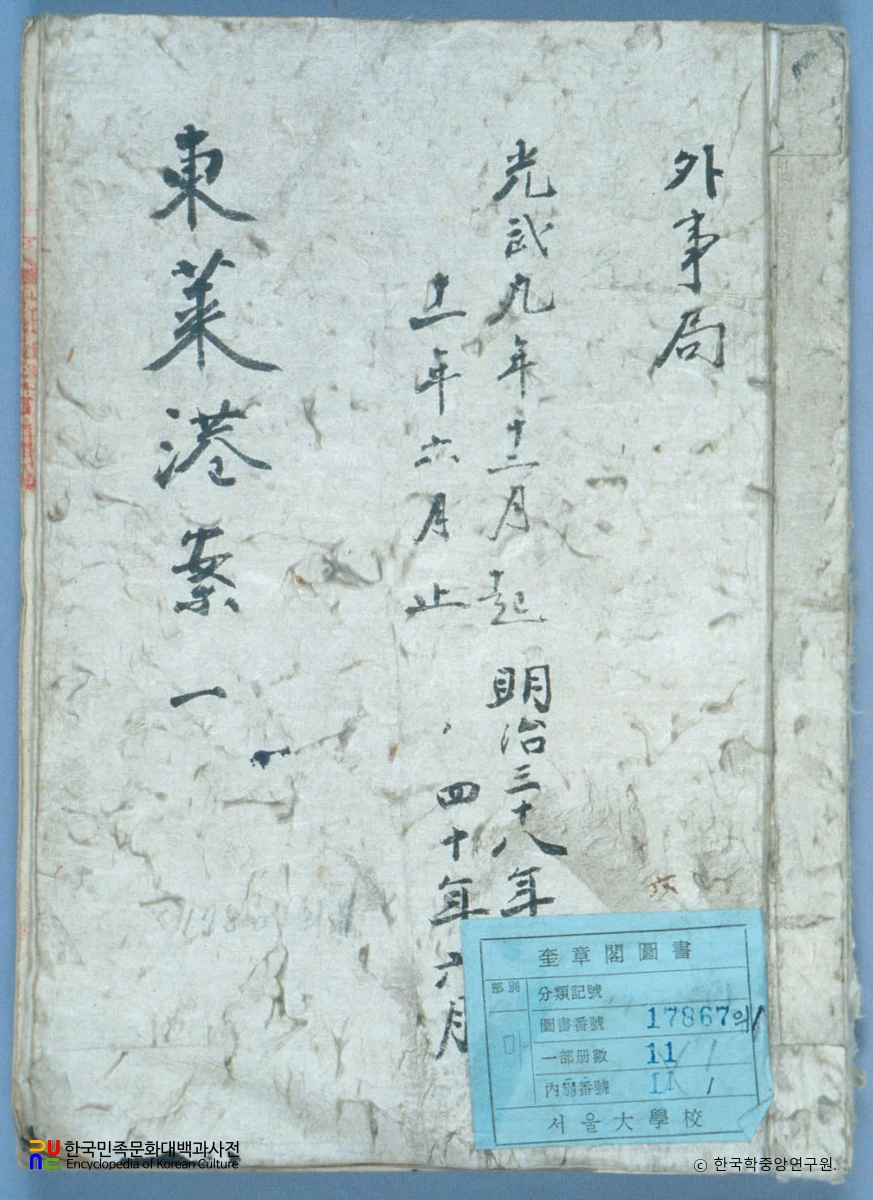 外事局
光武九年十二月起 明治三十八年
十一年六月止 、四十年六月
東萊港案 一
奎章閣圖書
部別
分類記號
圖書番號 17867의1
一部册數 11
內別番號 1
서울大學校
한국민족문화대백과사전
Encyclopedia of Korean Culture
© 한국학중앙연구원